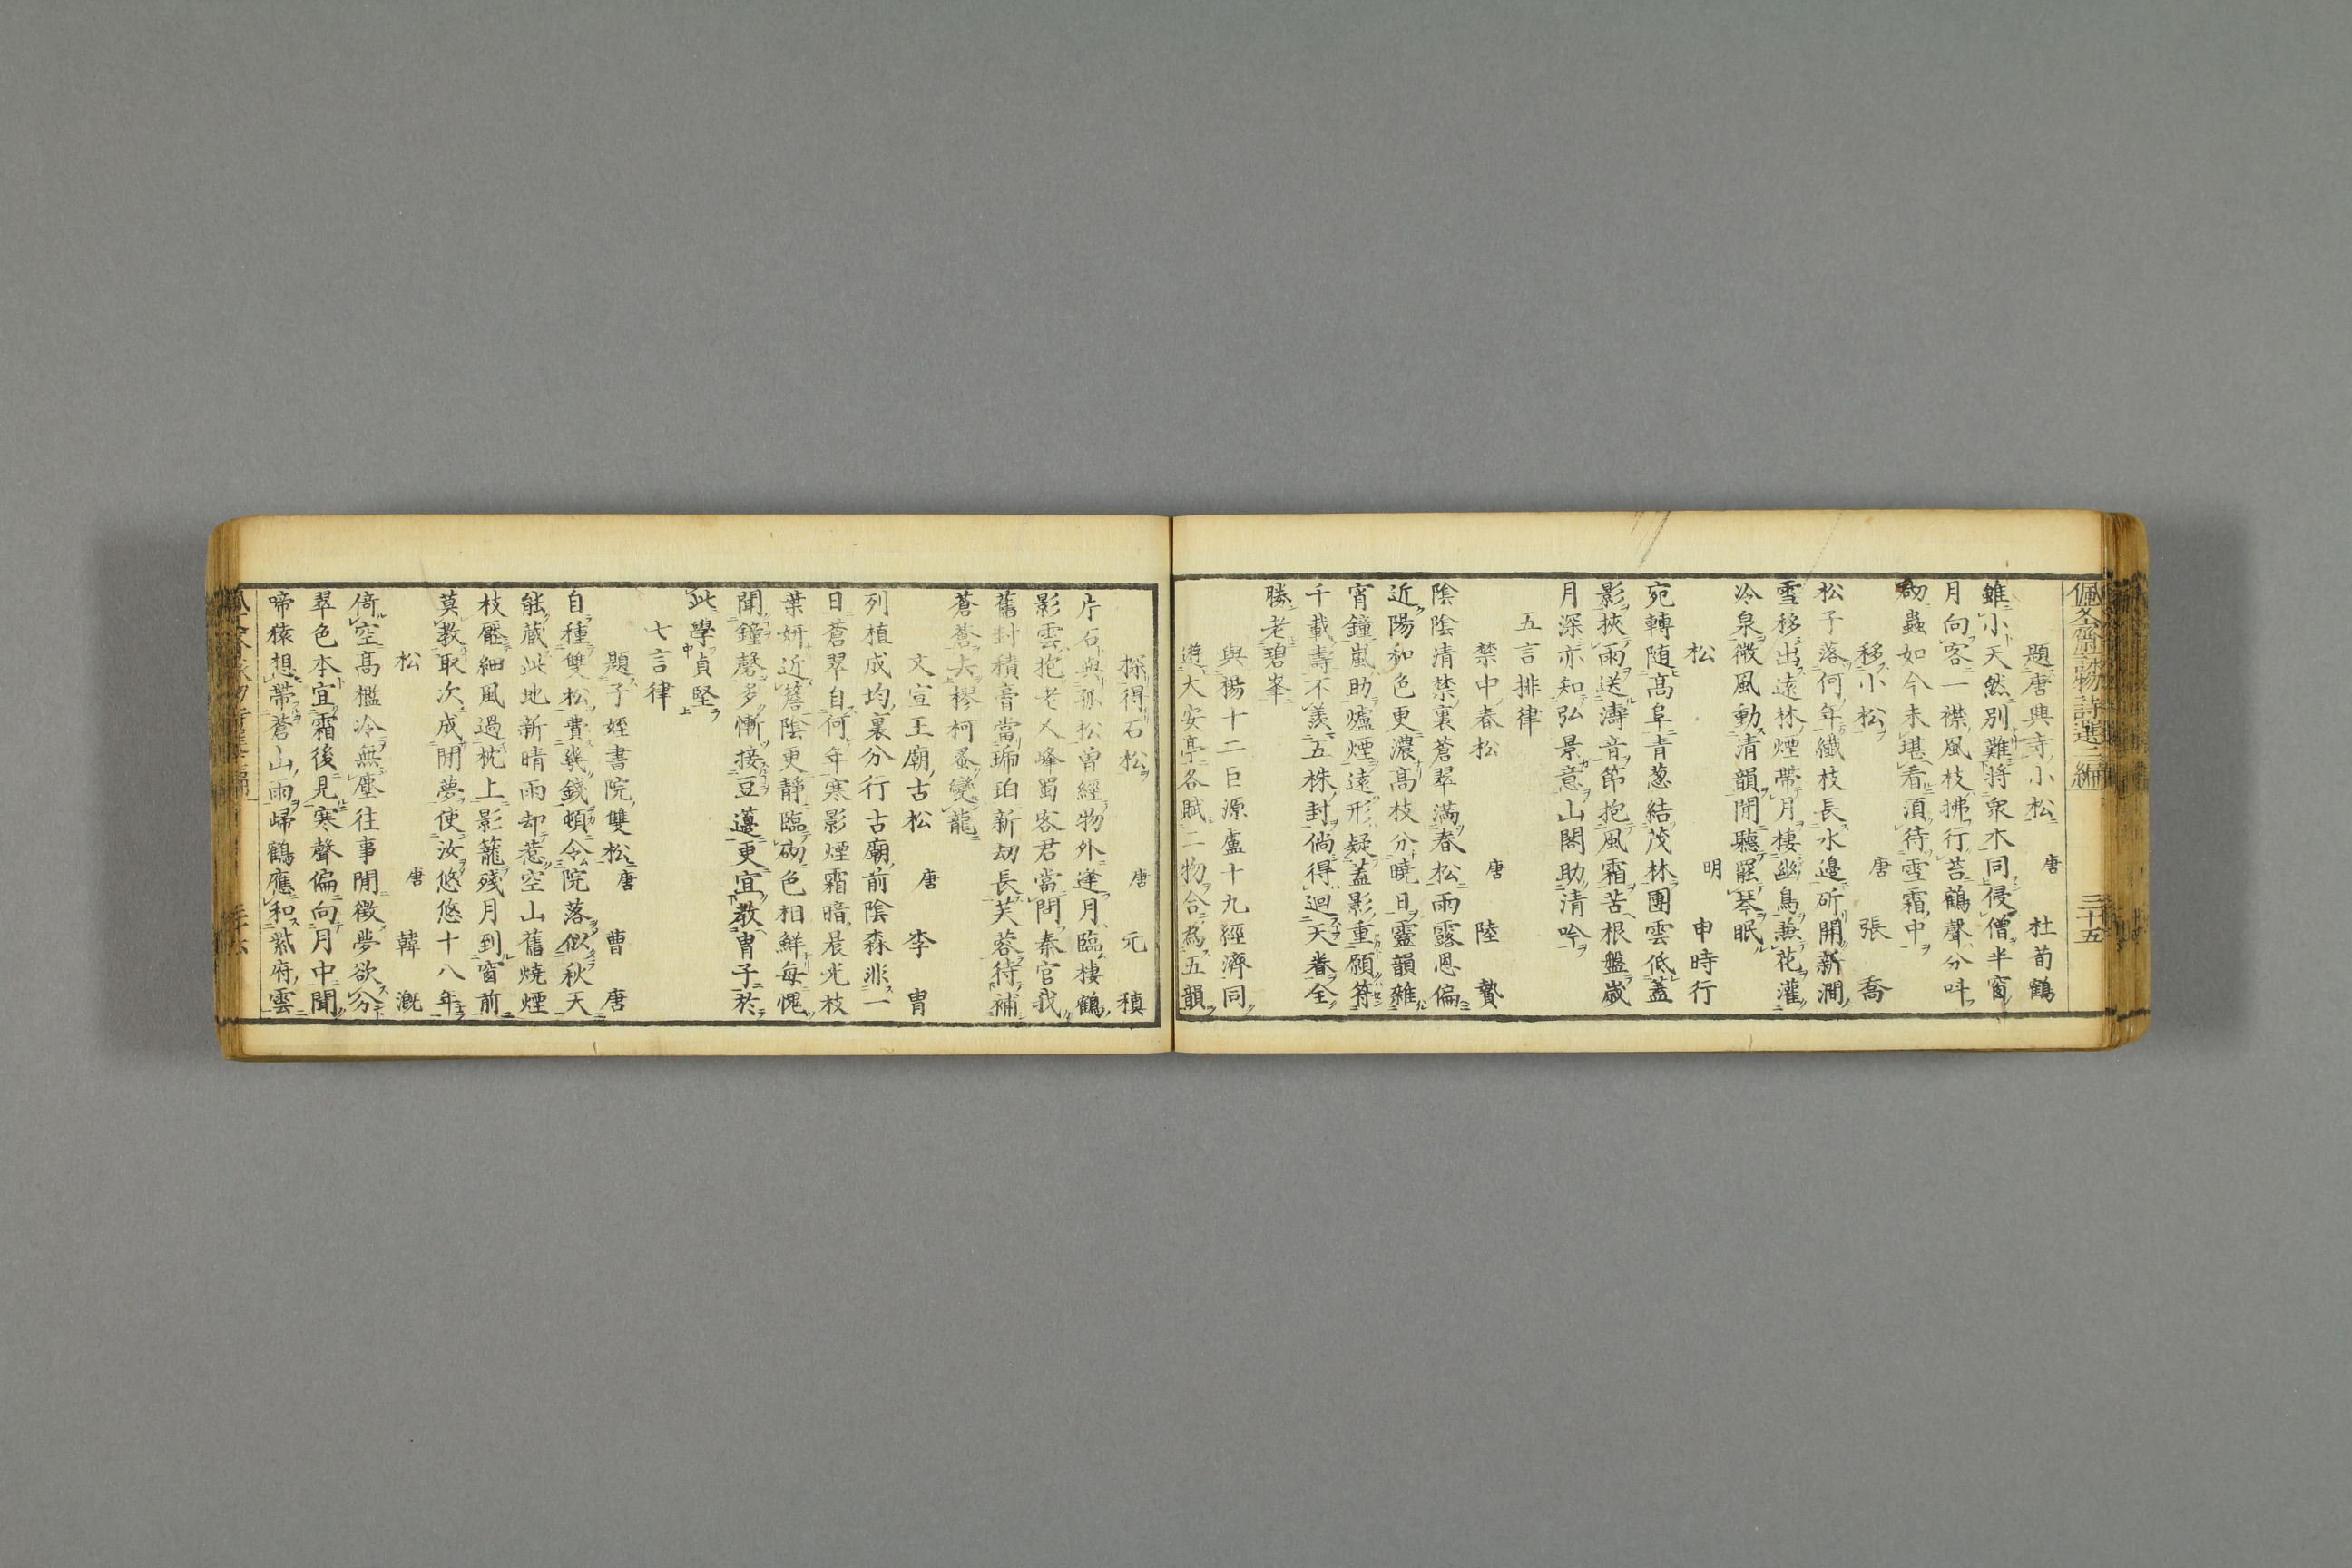 佩文齋詠物詩選二編 三十五
題唐興寺小松 唐 杜荀鶴
雖小天然別難將衆木同侵僧半窗
月向客一襟風枝拂行苔鶴聲分叫
砌蟲如今未堪看須待雪霜中
移小松 唐 張喬
松子落何年纖枝長水邊斫開新澗
雪移出遠林煙帶月棲幽鳥兼花灌
冷泉微風動清韻閒聽罷琴眠
松 明 申時行
宛轉随高阜青葱結茂林團雲低蓋
影挾雨送濤音節抱風霜苦根盤歲
月深亦知弘景意山閣助清吟
五言排律
禁中春松 唐 陸贄
陰陰清禁裏蒼翠滿春松雨露恩偏
近陽和色更濃高枝分曉日靈韻雜
宵鐘嵐助爐煙遠形疑蓋影重願符
千載壽不羨五株封倘得迴天眷全
勝老碧峯
與楊十二巨源盧十九經濟同
遊大安亭各賦二物合爲五韻
探得石松 唐 元稹
片石與孤松曾經物外逢月臨棲鶴
影雲抱老人峰蜀客君當問秦官我
舊封積膏當琥珀新劫長芙蓉待補
蒼蒼去樛柯蚤變龍
文宣王廟古松 唐 李胄
列植成均裏分行古廟前陰森非一
日蒼翠自何年寒影煙霜暗晨光枝
葉妍近簷陰更靜臨砌色相鮮每愧
聞鐘磬多慚接豆籩更宜教胄子於
此學貞堅
七言律
題子姪書院雙松 唐 曹唐
自種雙松費幾錢頓令院落似秋天
能藏此地新晴雨却惹空山舊燒煙
枝壓細風過枕上影籠殘月到窗前
莫教取次成閒夢使汝悠悠十八年
松 唐 韓溉
倚空高檻冷無塵往事閒徵夢欲分
翠色本宜霜後見寒聲偏向月中聞
啼猿想帶蒼山雨歸鶴應和紫府雲